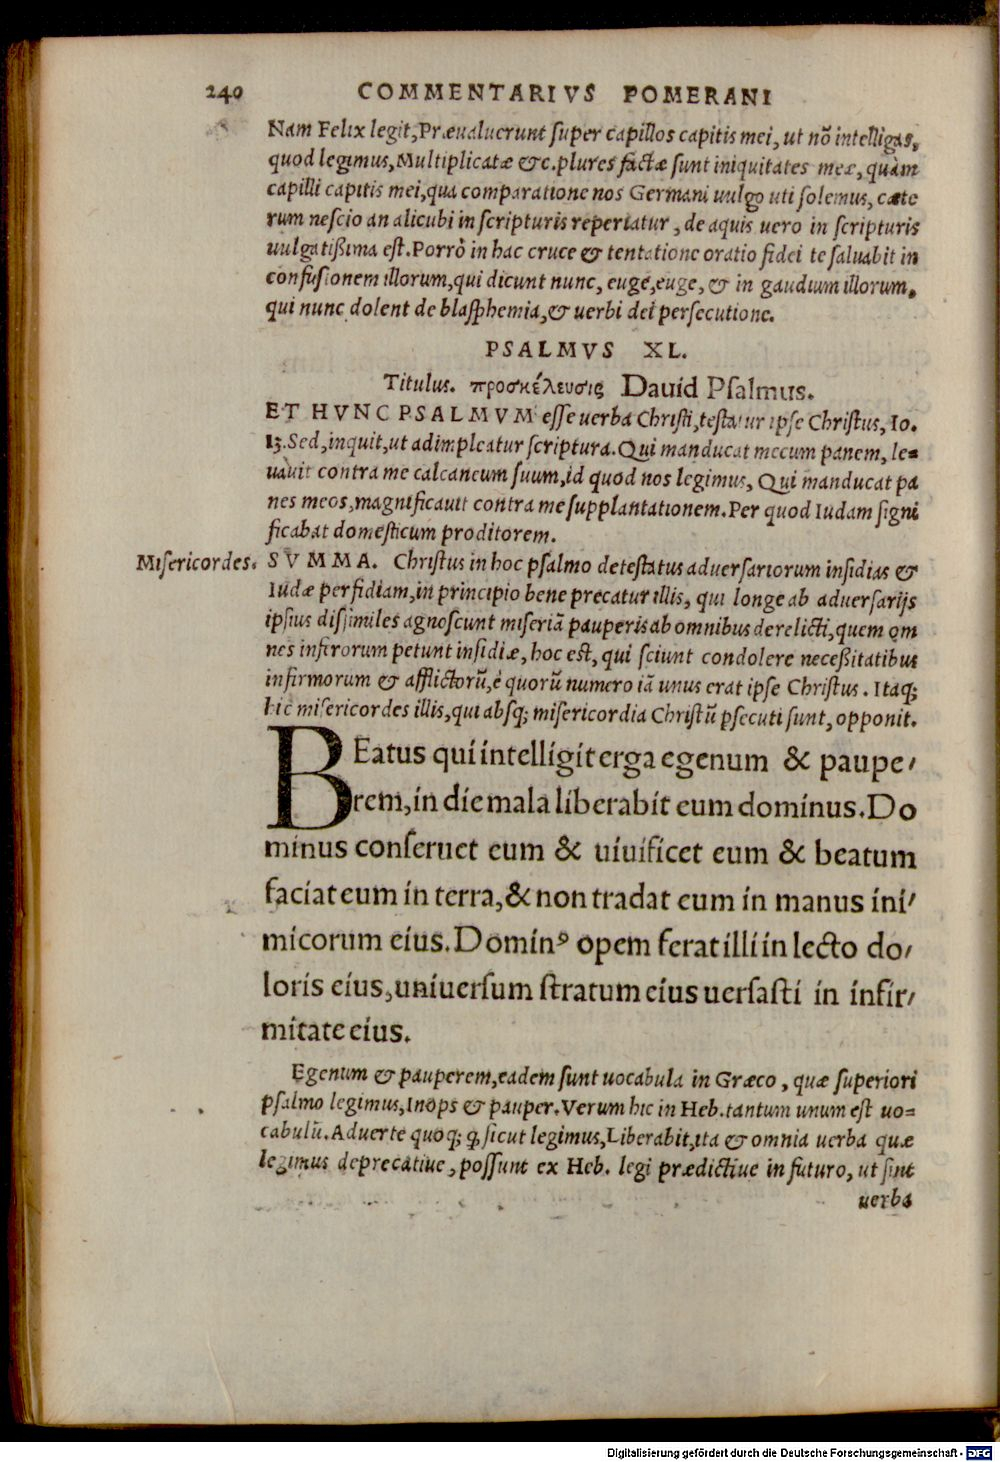 240 COMMENTARIVS POMERANI
Nam Felix legit, Præualuerunt super capillos capitis mei, ut nõ intelligas,
quod legimus, Multiplicatæ &c. plures factæ sunt iniquitates meæ, quàm
capilli capitis mei, qua comparatione nos Germani uulgo uti solemus, cæte
rum nescio an alicubi in scripturis reperiatur, de aquis uero in scripturis
uulgatißima est. Porrò in hac cruce & tentatione oratio fidei te saluabit in
confusionem illorum, qui dicunt nunc, euge, euge, & in gaudium illorum,
qui nunc dolent de blasphemia, & uerbi dei persecutione.
PSALMVS XL.
Titulus. προσκέλευσις Dauid Psalmus.
ET HVNC PSALMVM esse uerba Christi, testatur ipse Christus, Io.
13. Sed, inquit, ut adimpleatur scriptura. Qui manducat mecum panem, le=
uauit contra me calcaneum suum, id quod nos legimus, Qui manducat pa
nes meos, magnificauit contra me supplantationem. Per quod Iudam signi
ficabat domesticum proditorem.
Misericordes. SVMMA. Christus in hoc psalmo detestatus aduersariorum insidias &
Iudæ perfidiam, in principio bene precatur illis, qui longe ab aduersarijs
ipsius dissimiles agnoscunt miseriã pauperis ab omnibus derelicti, quem om
nes inferorum petunt insidiæ, hoc est, qui sciunt condolere neceßitatibus
infirmorum & afflictorũ, è quorũ numero iã unus erat ipse Christus. Itaq;
hic misericordes illis, qui absq; misericordia Christũ psecuti sunt, opponit.
BEatus qui intelligit erga egenum & paupe/
rem, in die mala liberabit eum dominus. Do
minus conseruet eum & uiuificet eum & beatum
faciat eum in terra, & non tradat eum in manus ini/
micorum eius. Dominꝰ opem ferat illi in lecto do/
loris eius, uniuersum stratum eius uersasti in infir/
mitate eius.
Egenum & pauperem, eadem sunt uocabula in Græco, quæ superiori
psalmo legimus, Inops & pauper. Verum hic in Heb. tantum unum est uo=
cabulũ. Aduerte quoq; ꝙ sicut legimus, Liberabit, ita & omnia uerba quæ
legimus deprecatiue, possunt ex Heb. legi prædictiue in futuro, ut sint
uerba
Digitalisierung gefördert durch die Deutsche Forschungsgemeinschaft - DFG